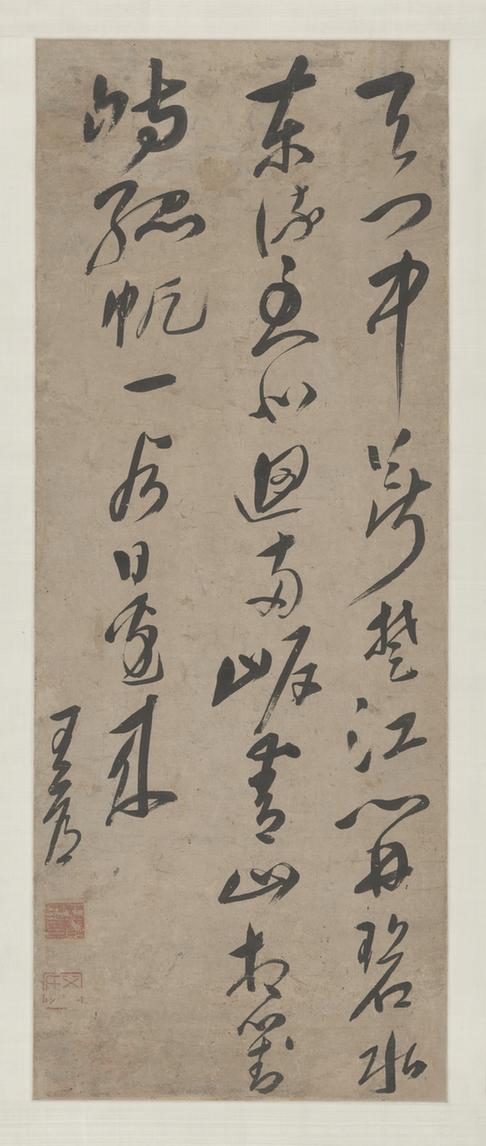 天門中斷楚江開碧水
東流至此迴兩岸青山相對
峙孤帆一片日邊來
王